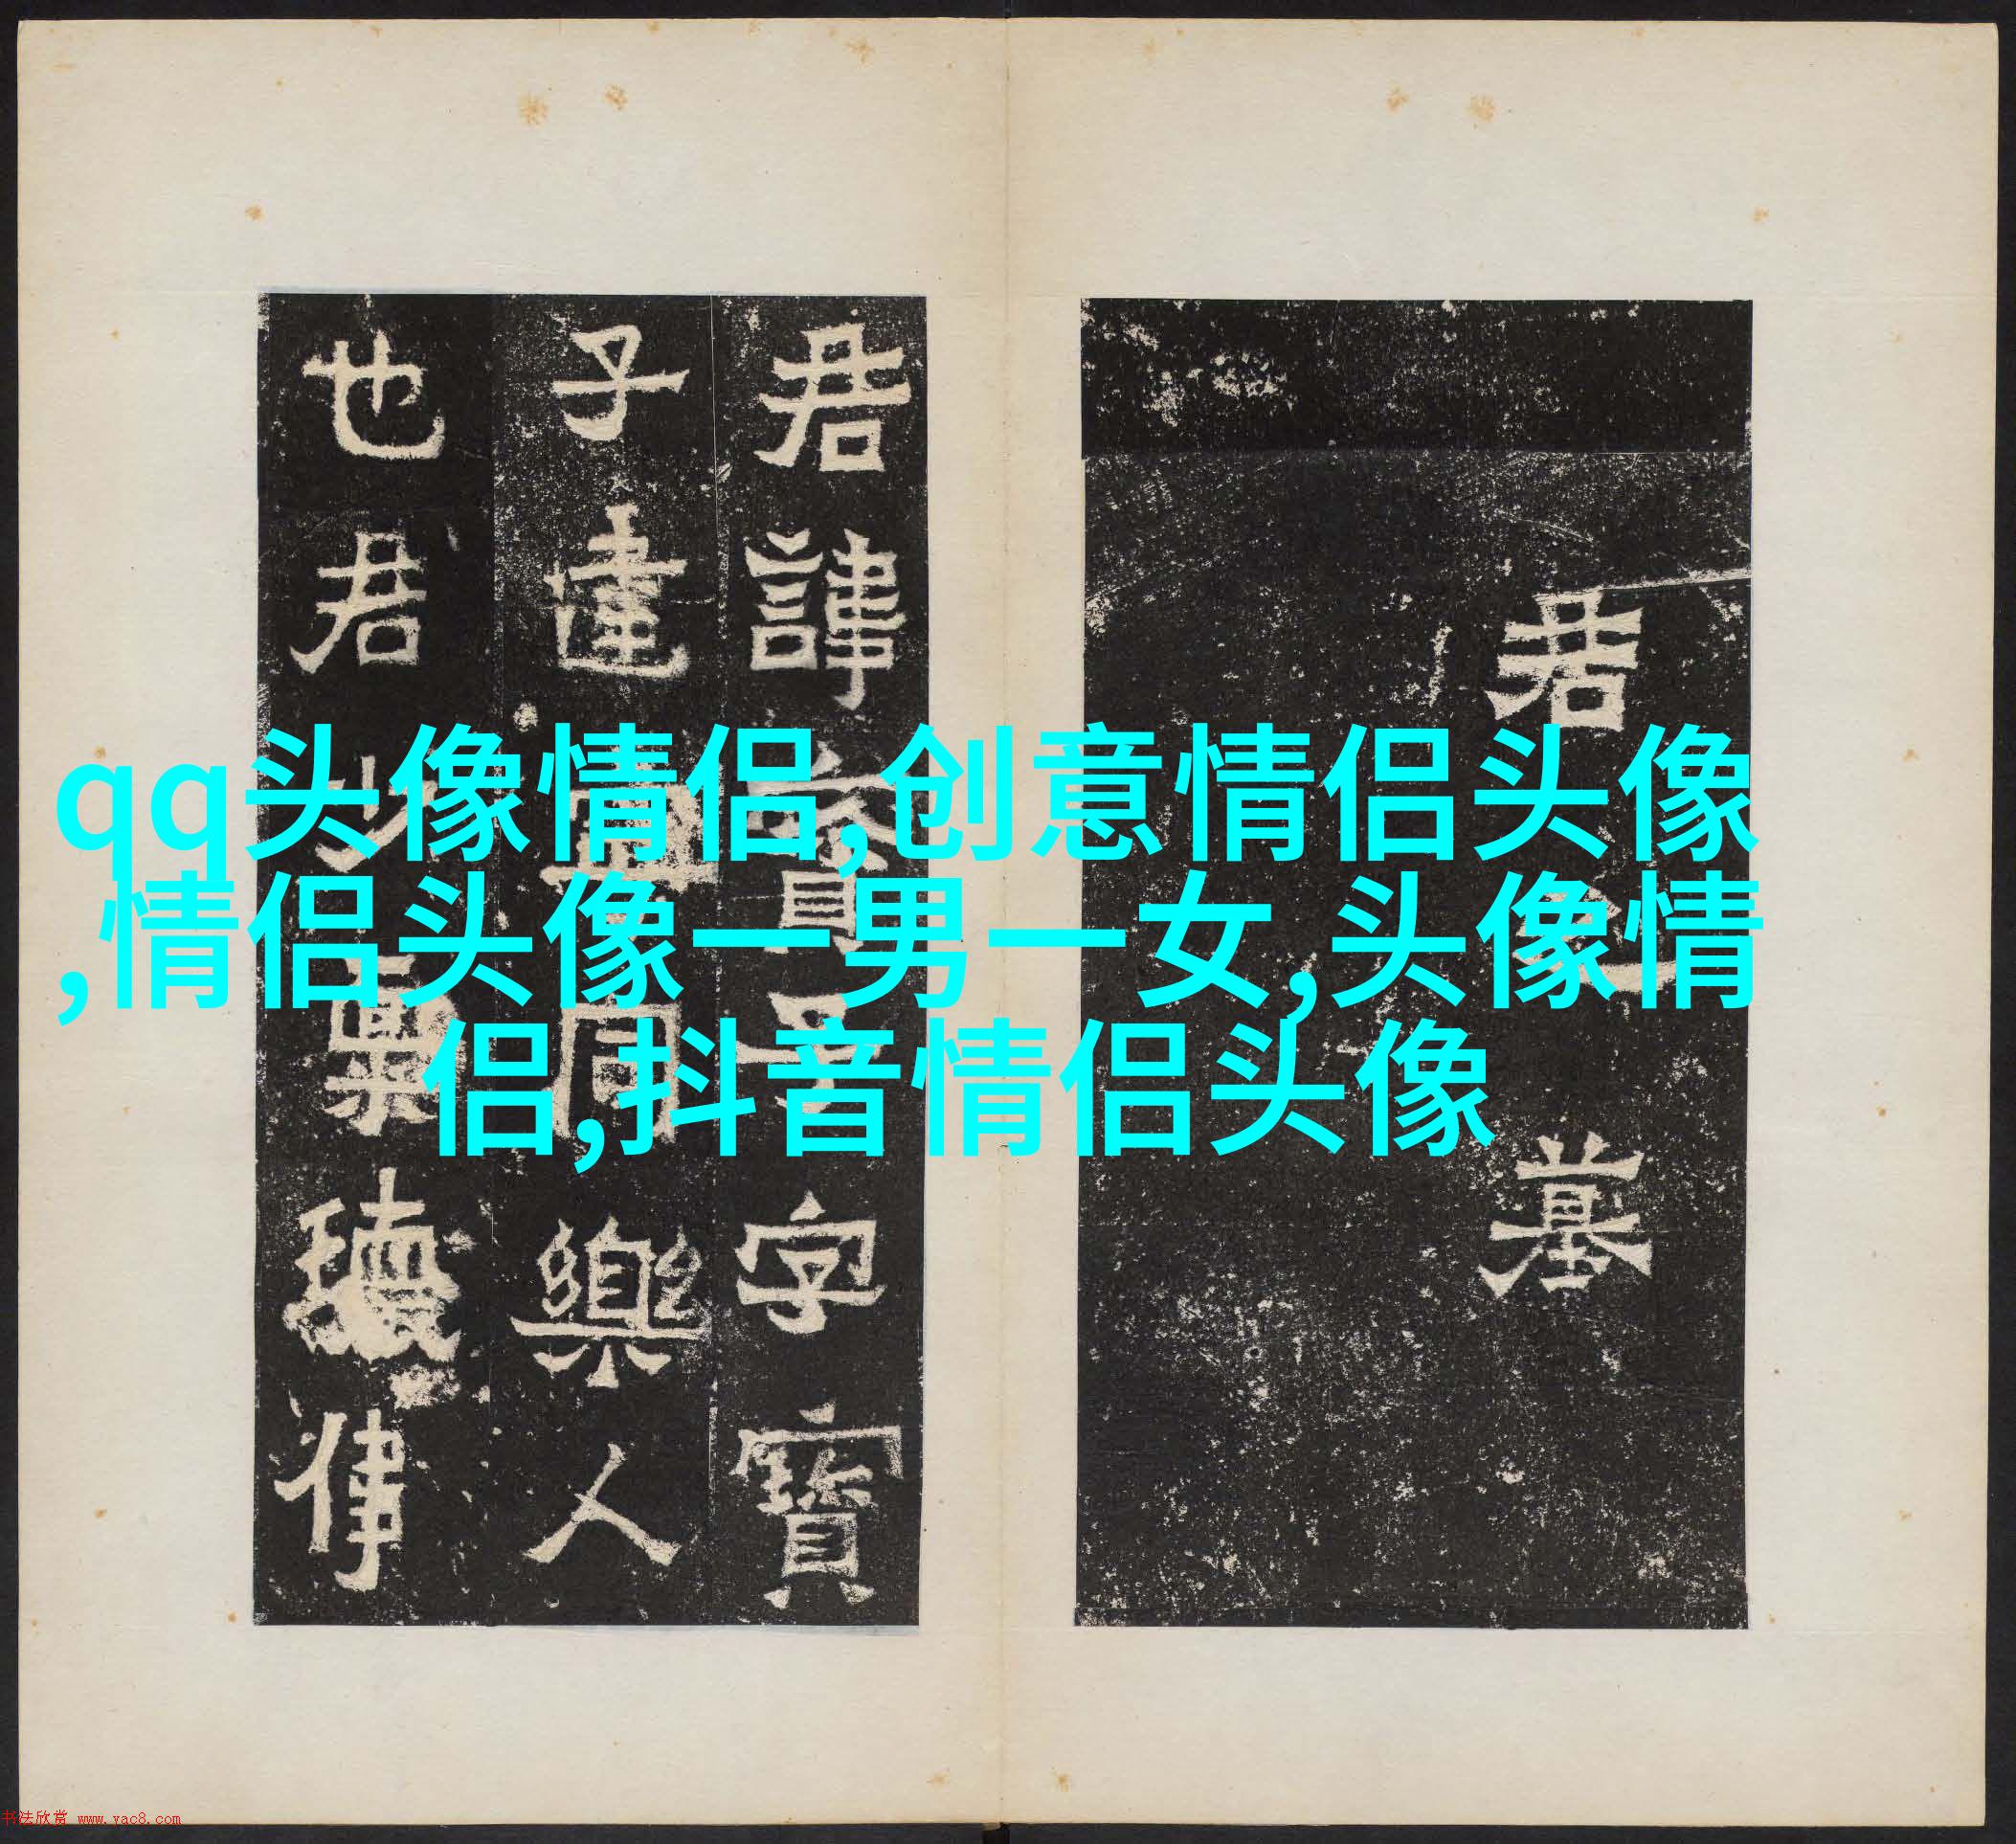 qq头像情侣,创意情侣头像
,情侣头像一男一女,头像情
侣,抖音情侣头像
君之墓
君諱寶子字寶
子建寧同樂人
也君少稟瓌偉
书法欣赏 www.yac8.com